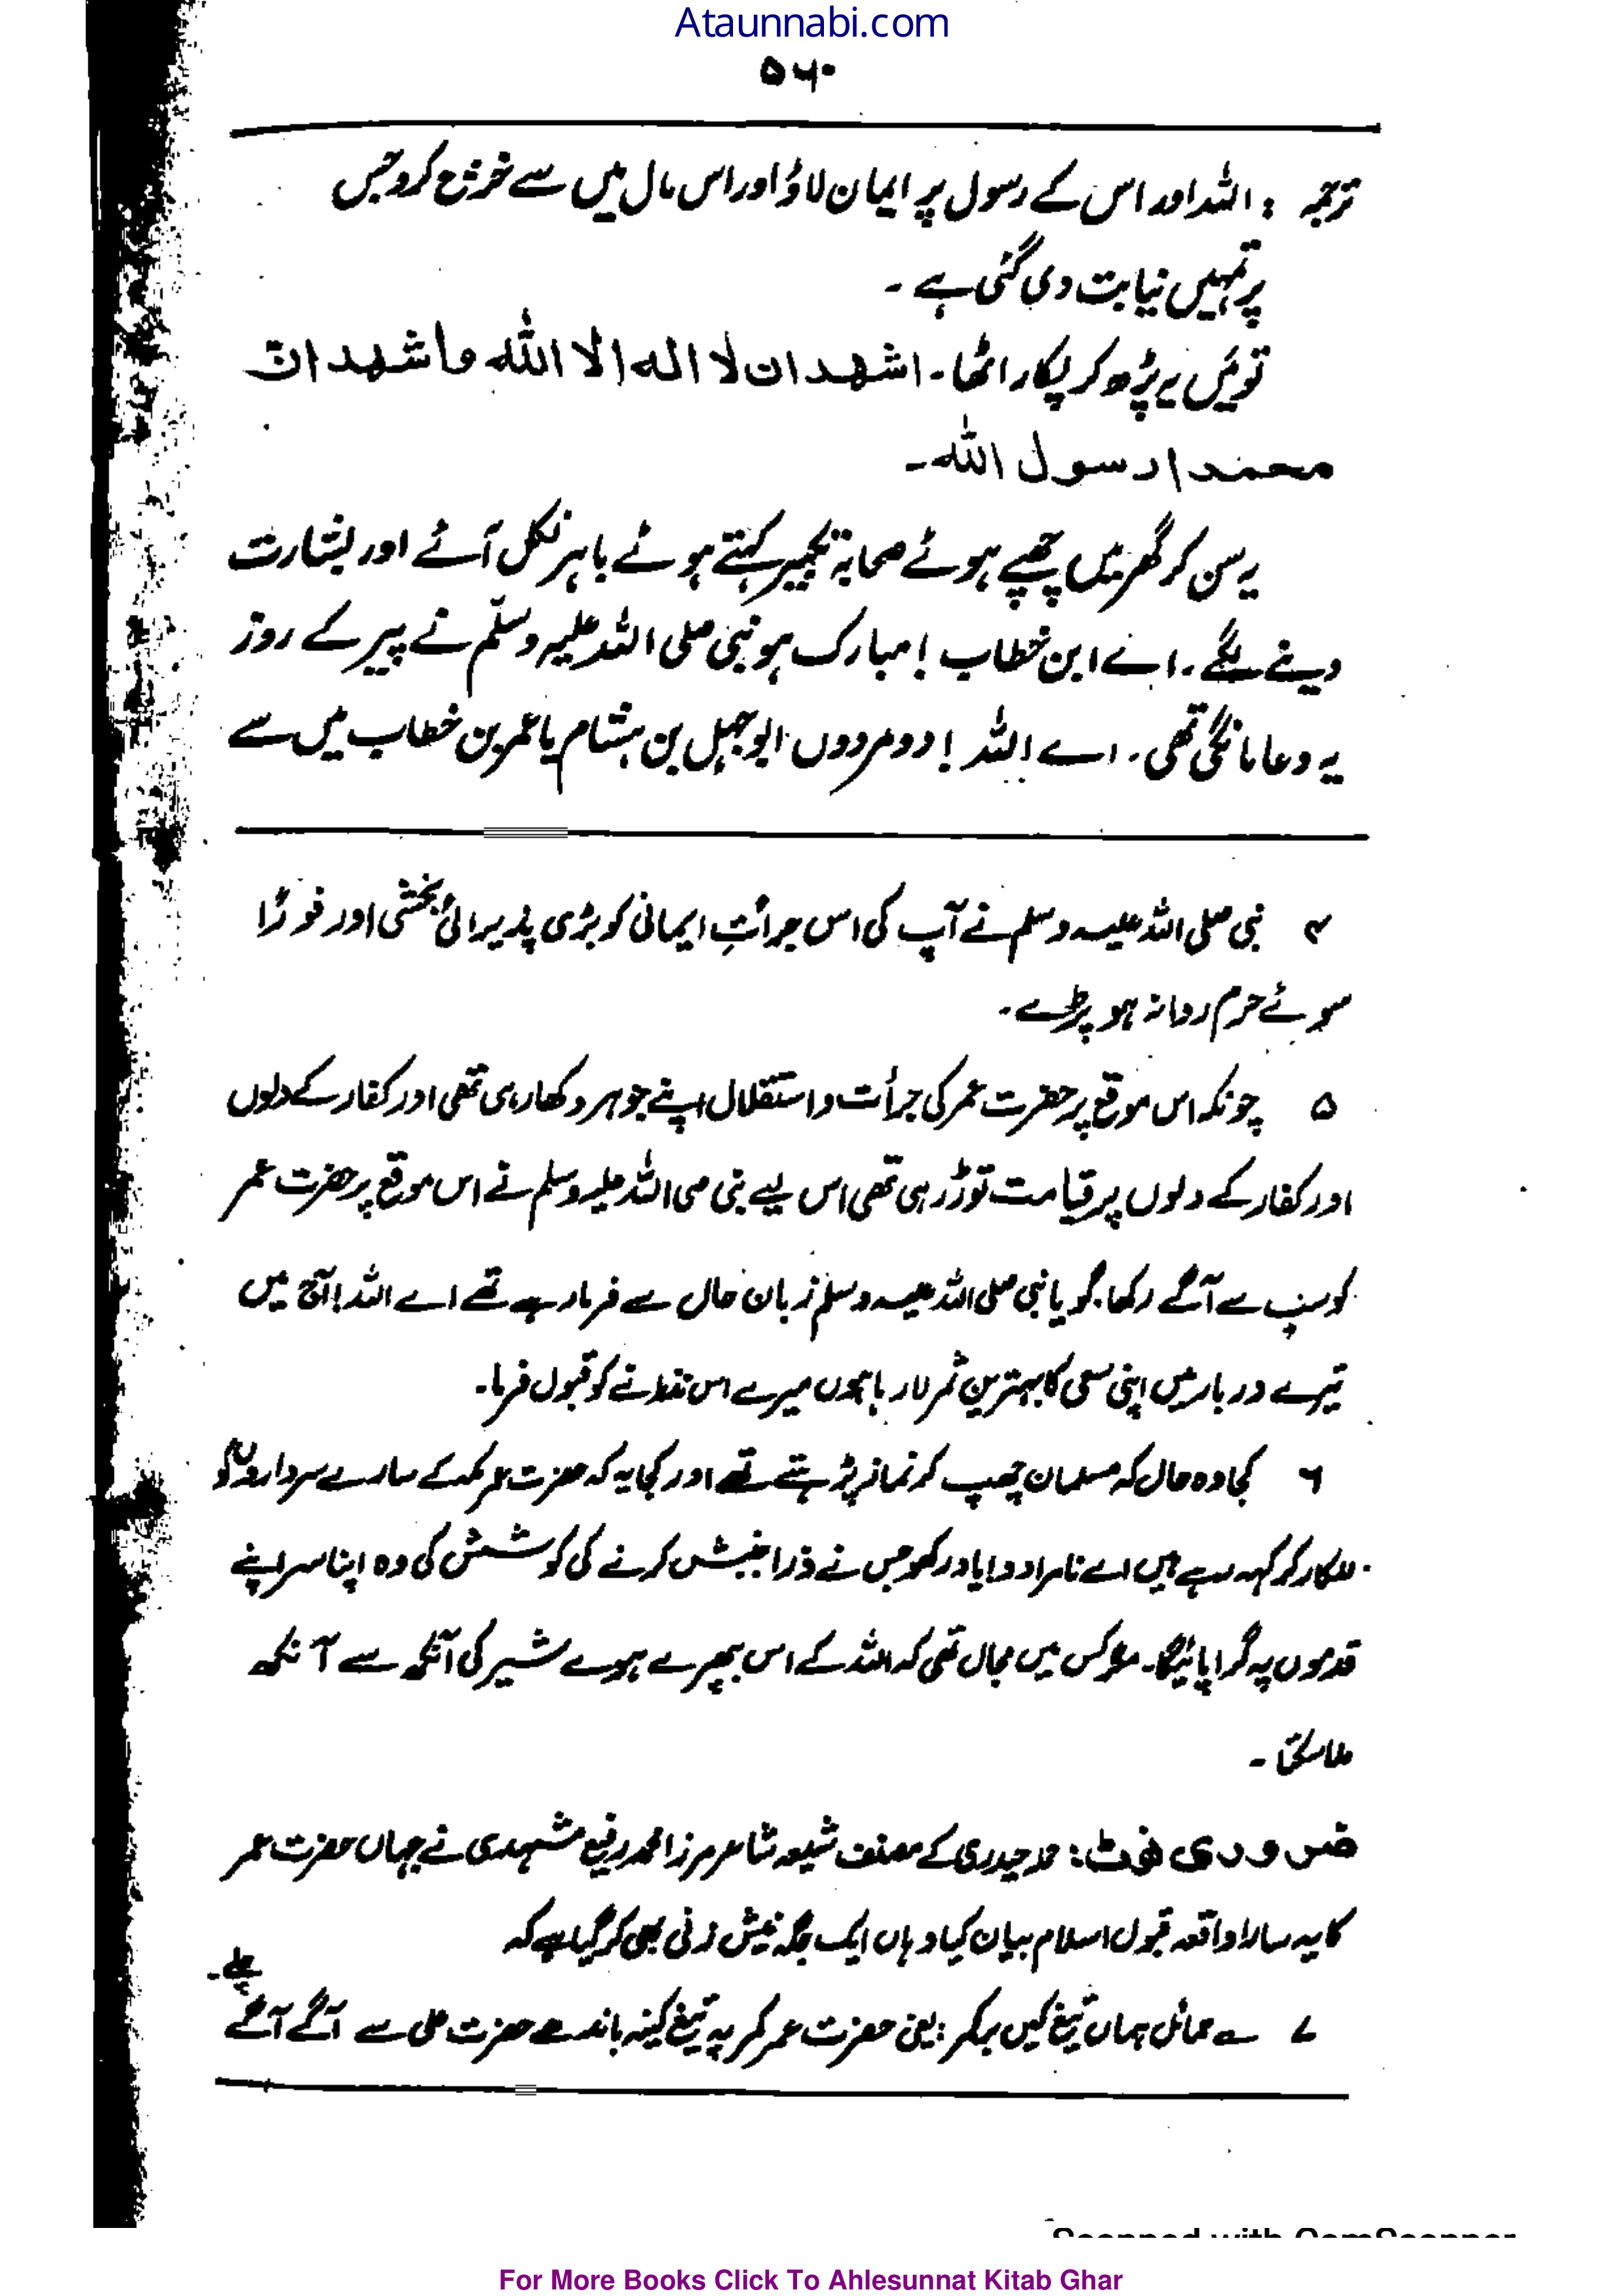 Ataunnabi.com
۵۶۰
ترجمہ : اللہ اور اس کے رسول پر ایمان لاؤ اور اس مال میں سے خرچ کرو جس
پر تمہیں نیابت دی گئی ہے ۔
تو میں یہ پڑھ کر پکار اٹھا ۔ اشهد ان لا اله الا الله واشهد ان
محمدا رسول الله ۔
یہ سن کر گھر میں چھپے ہوئے صحابہ تکبیر کہتے ہوئے باہر نکل آئے اور بشارت
دینے لگے ۔ اے ابن خطاب ! مبارک ہو نبی صلی اللہ علیہ وسلّم نے پیر کے روز
یہ دعا مانگی تھی ۔ اے اللہ ! دو مردوں ابوجہل بن ہشام یا عمر بن خطاب میں سے
۴ نبی صلی اللہ علیہ وسلم نے آپ کی اس جرأتِ ایمانی کو بڑی پذیرائی بخشی اور فورًا
سوئے حرم روانہ ہو پڑے ۔
۵ چونکہ اس موقع پر حضرت عمر کی جرأت و استقلال اپنے جوہر دکھا رہی تھی اور کفار کے دلوں
اور کفار کے دلوں پر قیامت توڑ رہی تھی اس لیے نبی صلی اللہ علیہ وسلم نے اس موقع پر حضرت عمر
کو سب سے آگے رکھا ۔ گویا نبی صلی اللہ علیہ وسلم زبان حال سے فرما رہے تھے اے اللہ ! آج میں
تیرے دربار میں اپنی سعی کا بہترین ثمر لا رہا ہوں میرے اس نذرانے کو قبول فرما ۔
۶ کجا وہ حال کہ مسلمان چھپ کر نماز پڑہتے تھے اور کجا یہ کہ حضرت عمر مکہ کے سارے سرداروں کو
للکار کر کہہ رہے ہیں اے نامرادو ! یاد رکھو جس نے ذرا جنبش کرنے کی کوشش کی وہ اپنا سر اپنے
قدموں پہ گرا پائیگا ۔ مگر کس میں مجال تھی کہ اللہ کے اس بپھرے ہوے شیر کی آنکھ سے آنکھ
ملا سکتی ۔
ضروری نوٹ : حملہ حیدری کے مصنف شیعہ شاعر مرزا محمد رفیع مشہدی نے جہاں حضرت عمر
کا یہ سارا واقعہ قبول اسلام بیان کیا وہاں ایک جگہ نیش زنی بھی کر گیا ہے کہ
۷ ؎ حمائل ہماں تیغ کیں بر کمر : یعنی حضرت عمر کمر پہ تیغ کینہ باندھے حضرت علی سے آگے آگے چلے ۔
For More Books Click To Ahlesunnat Kitab Ghar